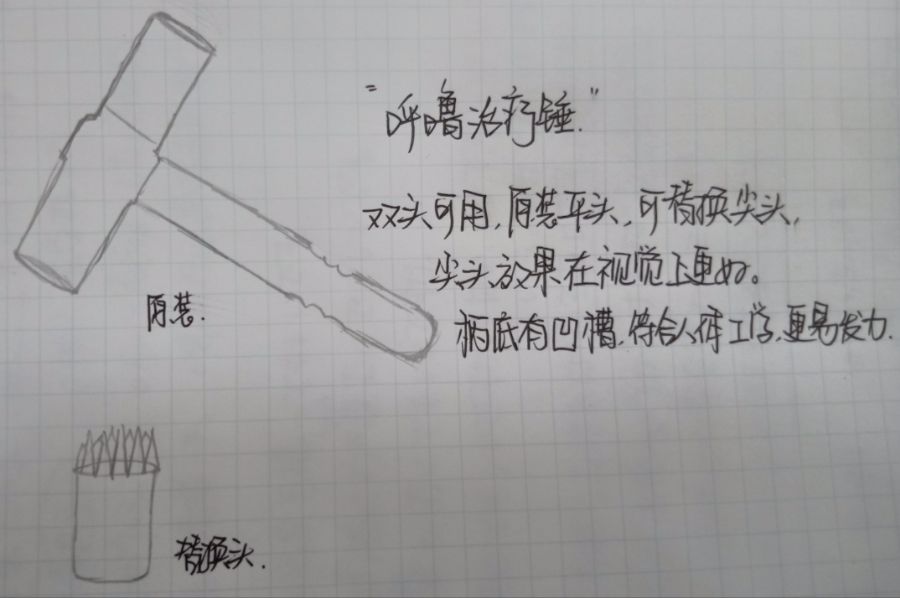 "呼噜治疗锤."
双头可用,原装平头,可替换尖头,
尖头效果在视觉上更好。
柄底有凹槽,符合人体工学,更易发力.
原装.
替换头.